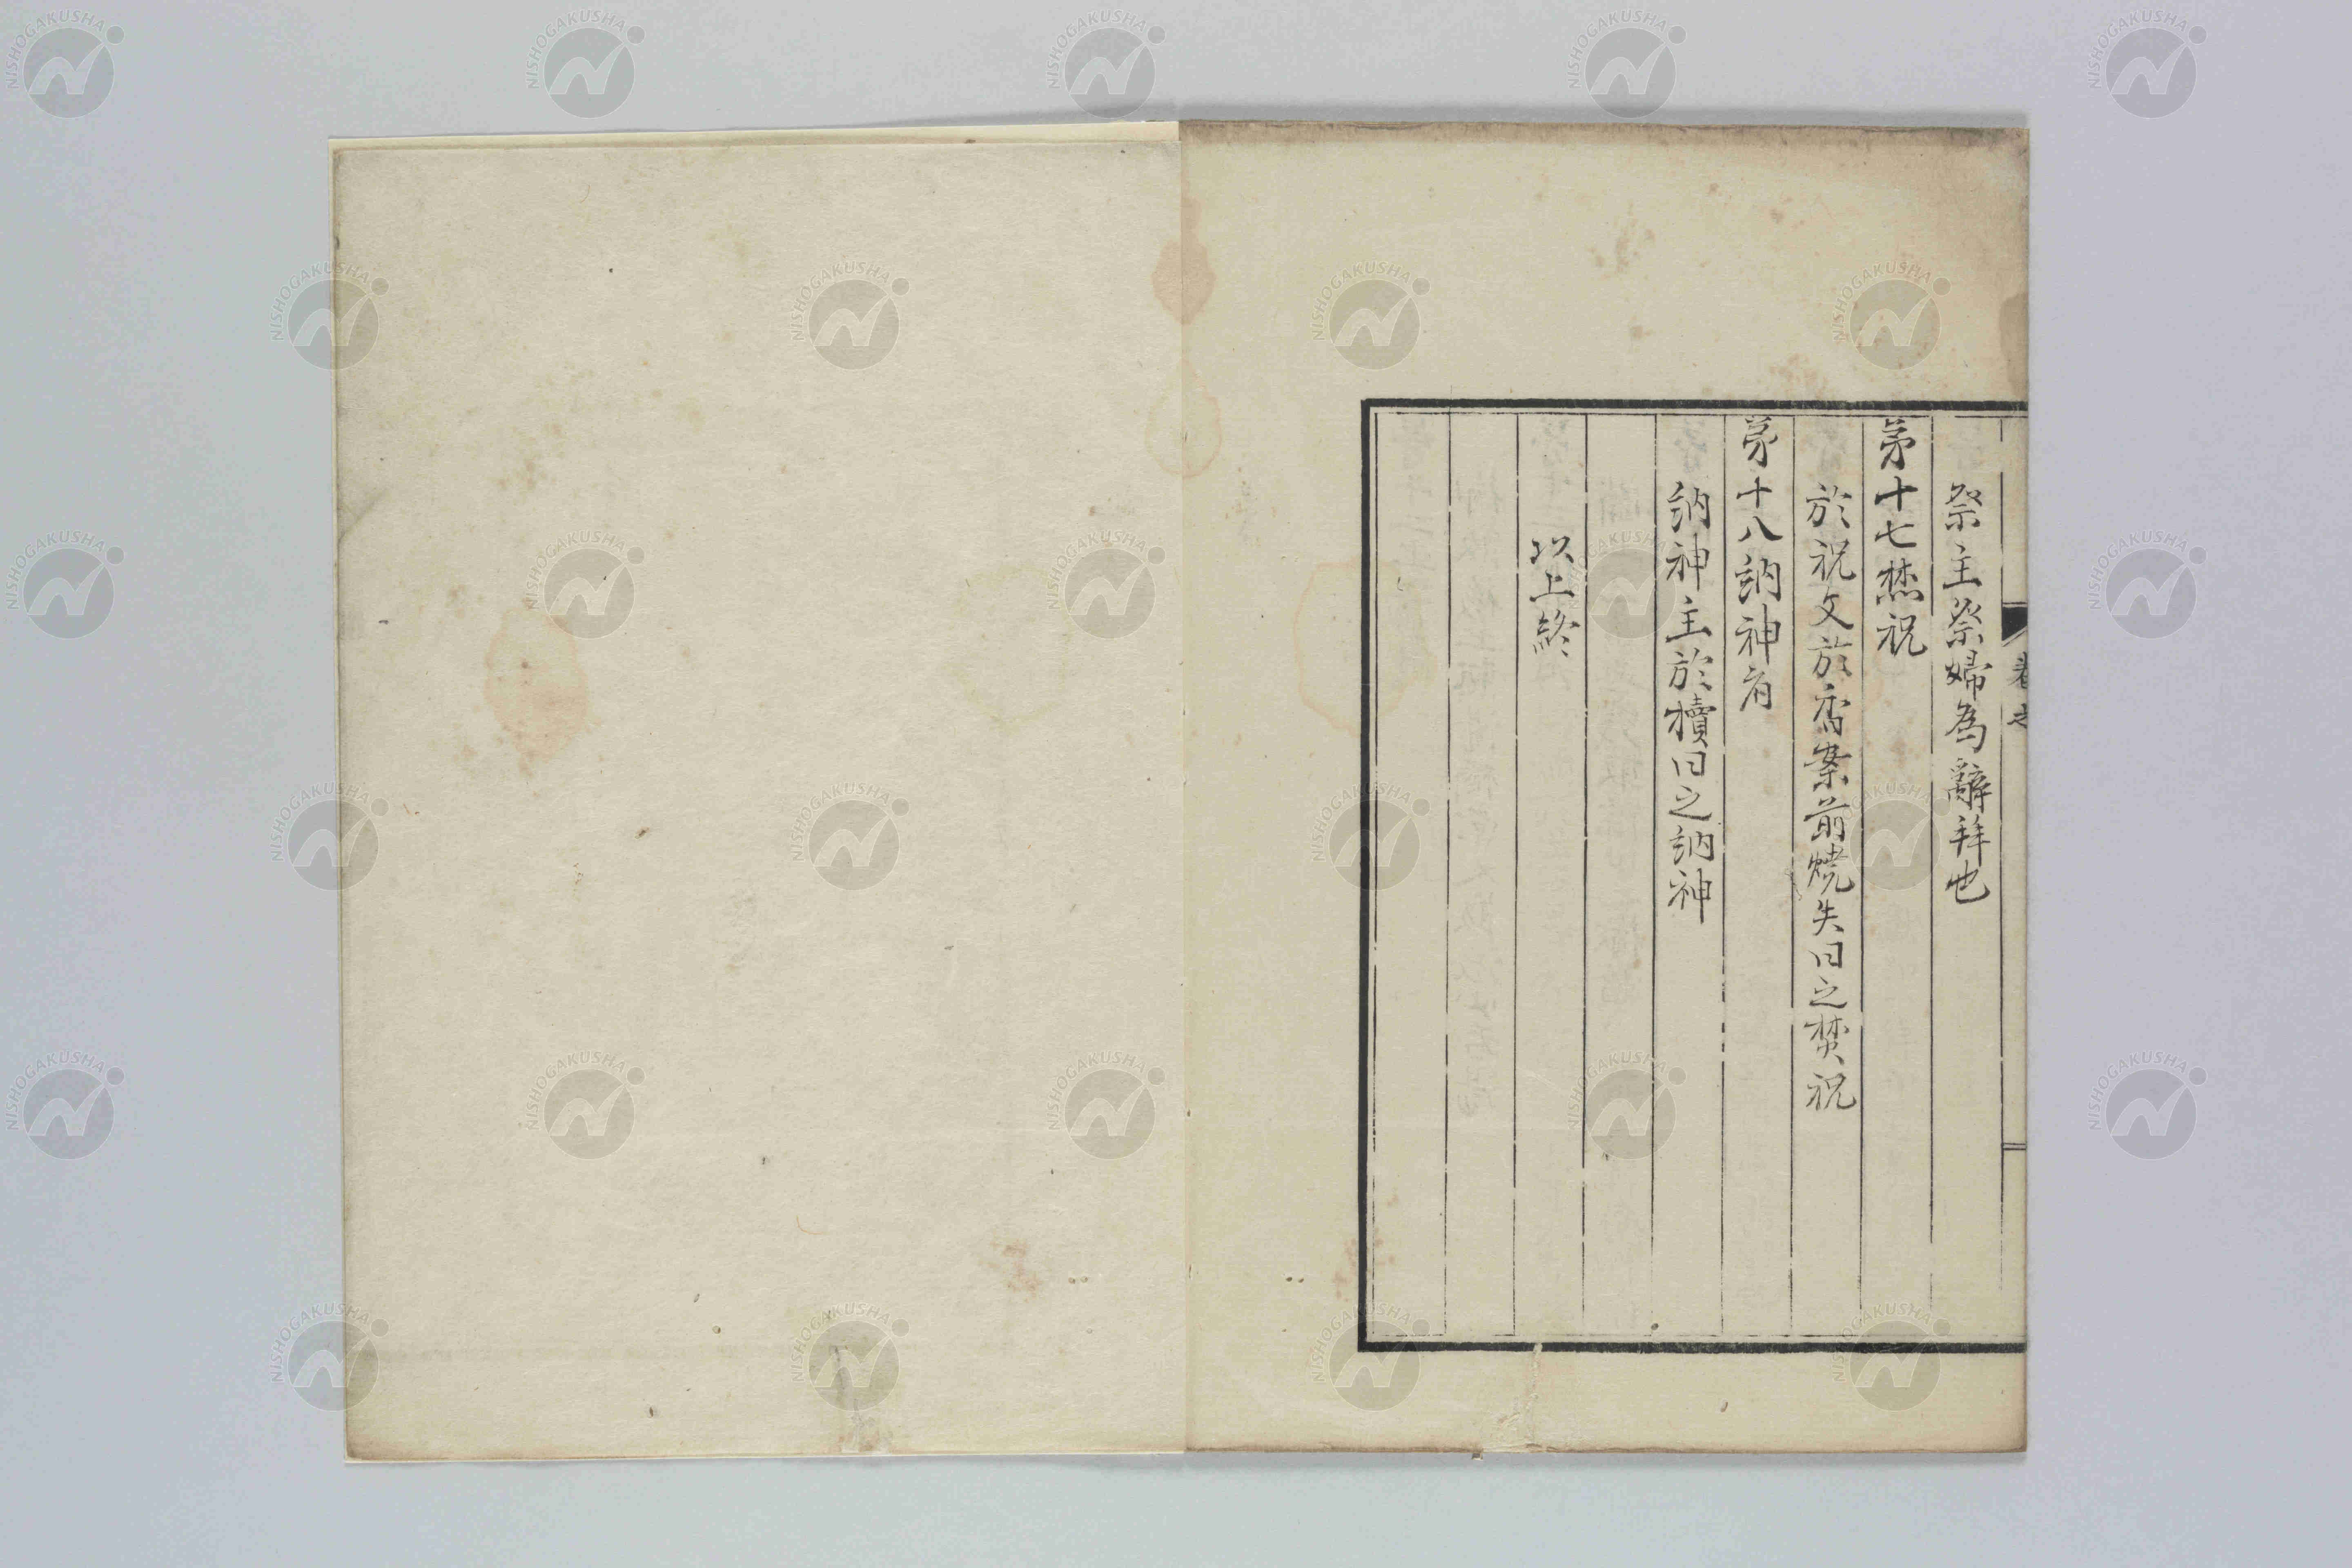 祭主祭婦為辭拜也
第十七焚祝
於祝文於香案前焼失曰之焚祝
第十八納神者
納神主於櫝曰之納神
以上終
NISHOGAKUSHA